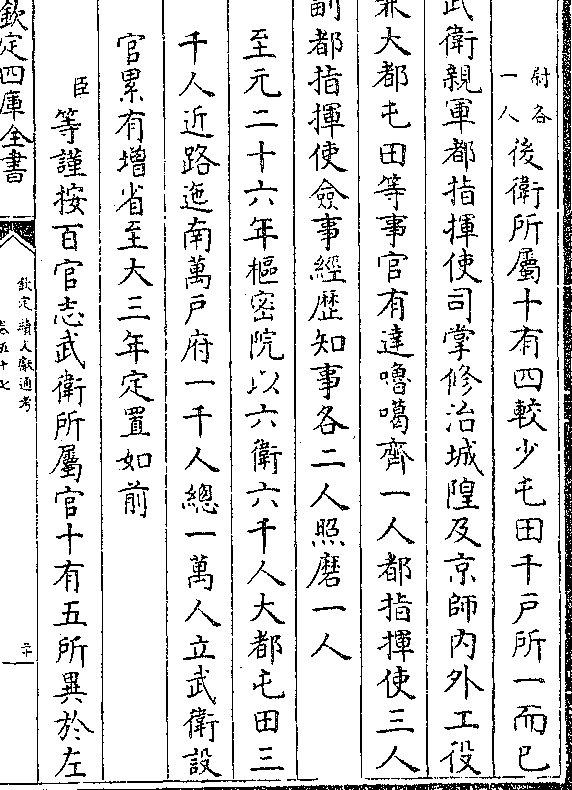 尉各
一人
後衛所屬十有四較少屯田千戸所一而已
武衛親軍都指揮使司掌修治城隍及京師内外工役
兼大都屯田等事官有達嚕噶齊一人都指揮使三人
副都指揮使僉事經歴知事各二人照磨一人
至元二十六年樞密院以六衛六千人大都屯田三
千人近路迤南萬戸府一千人總一萬人立武衛設
官累有增省至大三年定置如前
臣等謹按百官志武衛所屬官十有五所異於左
欽定四庫全書
欽定續文獻通考
卷五十七
二十